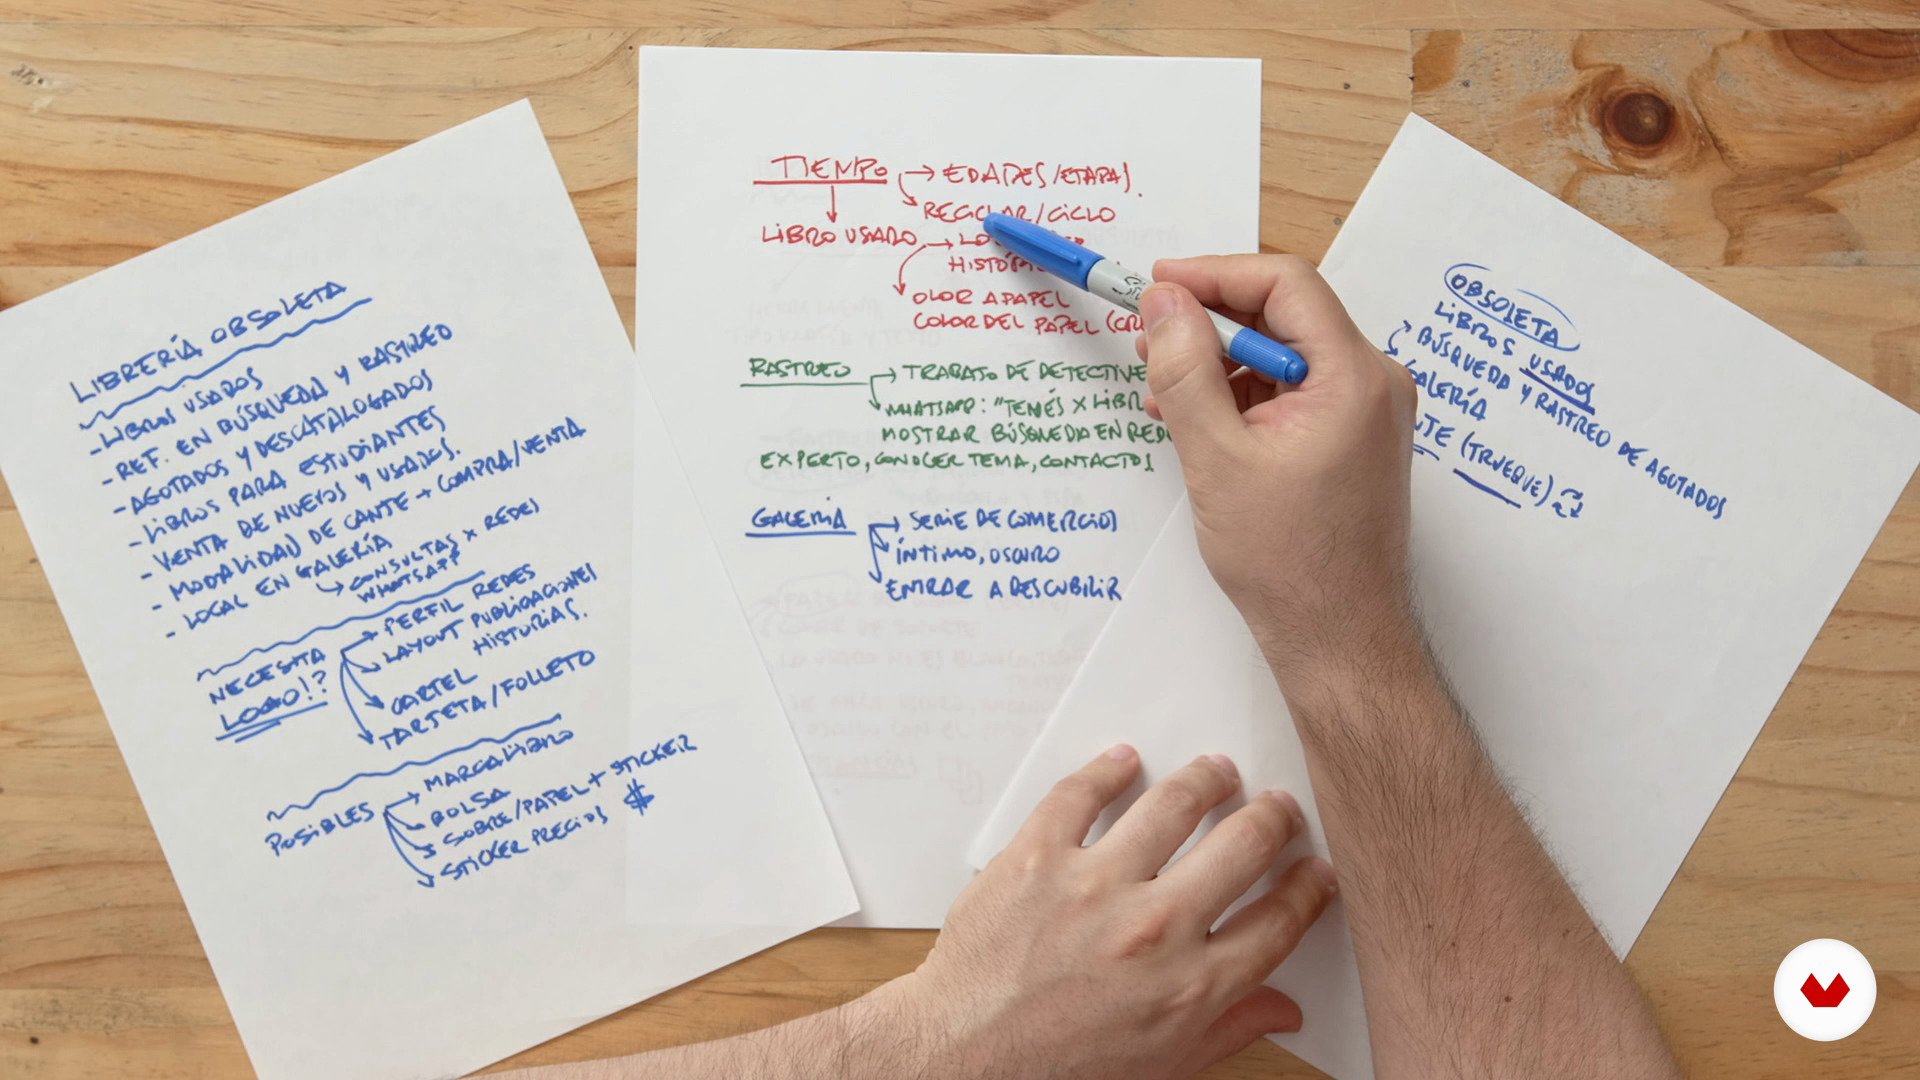 LIBRERÍA OBSOLETA
- LIBROS USADOS
- REF. EN BÚSQUEDA Y RASTREO
- AGOTADOS Y DESCATALOGADOS
- LIBROS PARA ESTUDIANTES
- VENTA DE NUEVOS Y USADOS.
- MODALIDAD DE CANJE → COMPRA/VENTA
- LOCAL EN GALERÍA
↳ CONSULTAS X REDES
WHATSAPP
NECESITA
LOGO!?
→ PERFIL REDES
LAYOUT PUBLICACIONES
HISTORIAS.
CARTEL
TARJETA/FOLLETO
POSIBLES → MARCALIBRO
BOLSA
SOBRE/PAPEL + STICKER
STICKER PRECIOS $
TIEMPO → EDADES/ETAPAS.
RECICLAR/CICLO
LIBRO USADO →
OLOR A PAPEL
COLOR DEL PAPEL
RASTREO → TRABAJO DE DETECTIVE
WHATSAPP: "TENÉS X
MOSTRAR BÚSQUEDA EN
EXPERTO, CONOCER TEMA, CONTACTOS
GALERÍA → SERIE DE COMERCIOS
ÍNTIMO, OSCURO
ENTRAR A DESCUBRIR
OBSOLETA
LIBROS USADOS
BÚSQUEDA Y RASTREO DE AGOTADOS
GALERÍA
(TRUEQUE)